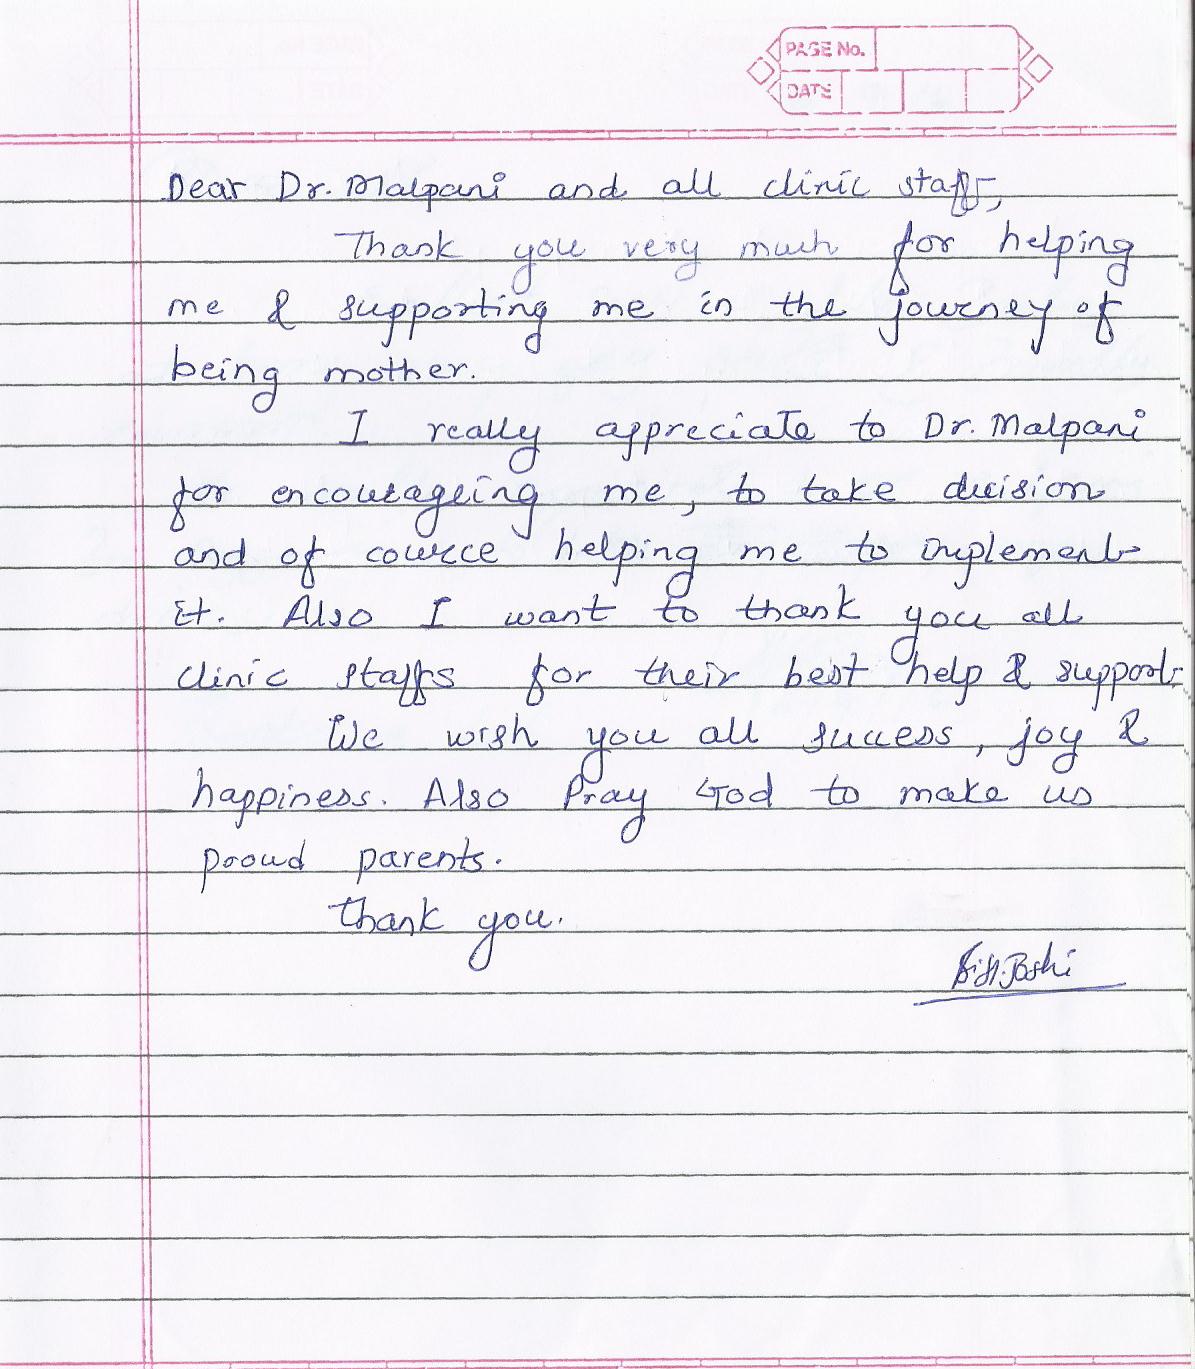 PAGE No.
DATE
Dear Dr. Malpani and all clinic staff,
Thank you very much for helping
me & supporting me in the journey of
being mother.
I really appreciate to Dr. Malpani
for encourageing me, to take decision
and of cource helping me to implement
it. Also I want to thank you all
clinic staffs for their best help & support.
We wish you all success, joy &
happiness. Also Pray God to make us
proud parents.
Thank you.
Joshi